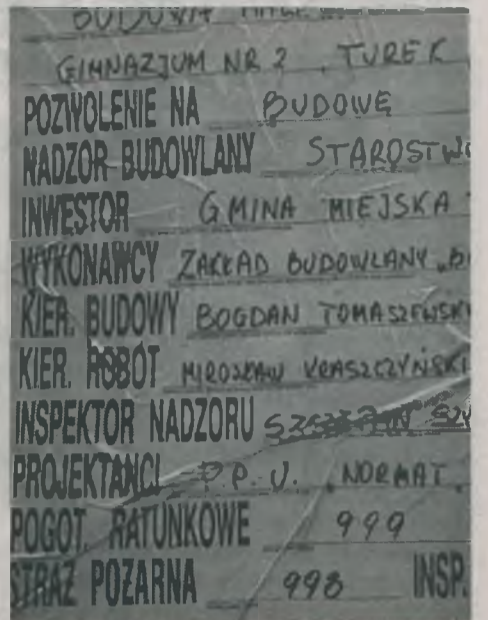 BUDOWA
GIMNAZJUM NR 2 , TUREK
POZWOLENIE NA BUDOWĘ
NADZÓR BUDOWLANY STAROSTW
INWESTOR GMINA MIEJSKA
WYKONAWCY ZAKŁAD BUDOWLANY „B
KIER. BUDOWY BOGDAN TOMASZEWSK
KIER. ROBÓT MIROSŁAW KRASZCZYŃSKI
INSPEKTOR NADZORU
PROJEKTANCI P.U. „NORMAT
POGOT. RATUNKOWE 999
STRAŻ POŻARNA 998 INSP.